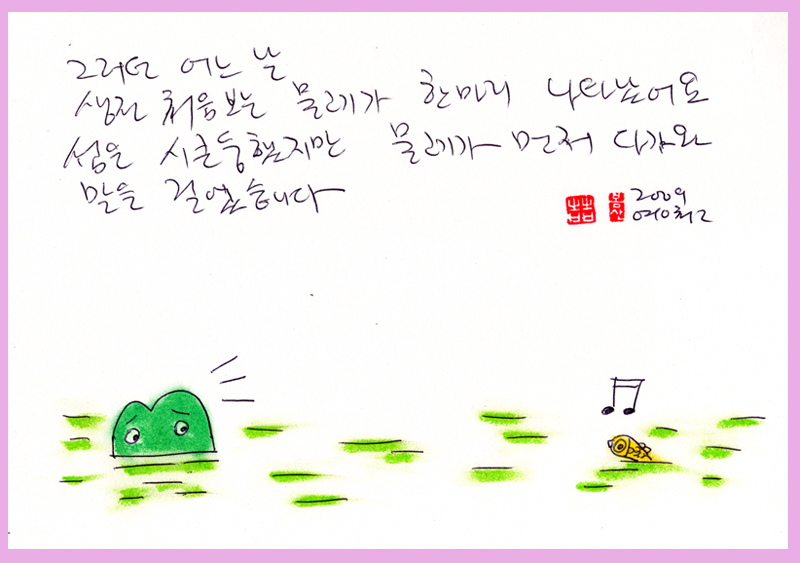 그러던 어느 날
생전 처음보는 물레가 한마리 나타났어요
섬은 시큰둥했지만 물레가 먼저 다가와
말을 걸었습니다
2009